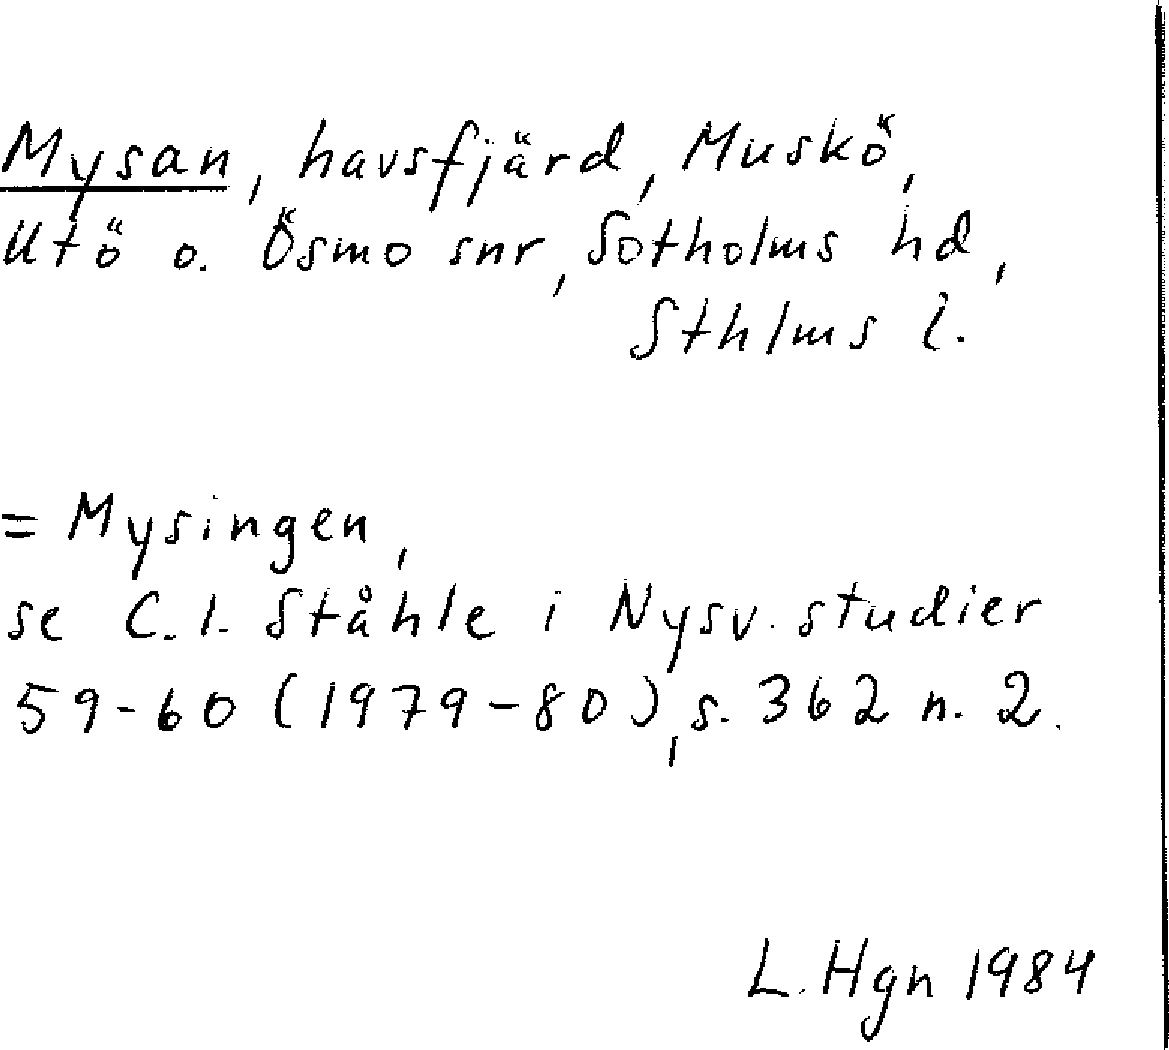 Mysan, havsfjärd, Muskö,
Utö o. Ösmo snr, Sotholms hd,
Sthlms l.
= Mysingen,
se C. I. Ståhle i Nysv. studier
59-60 (1979-80), s. 362 n. 2.
L. Hgn 1984